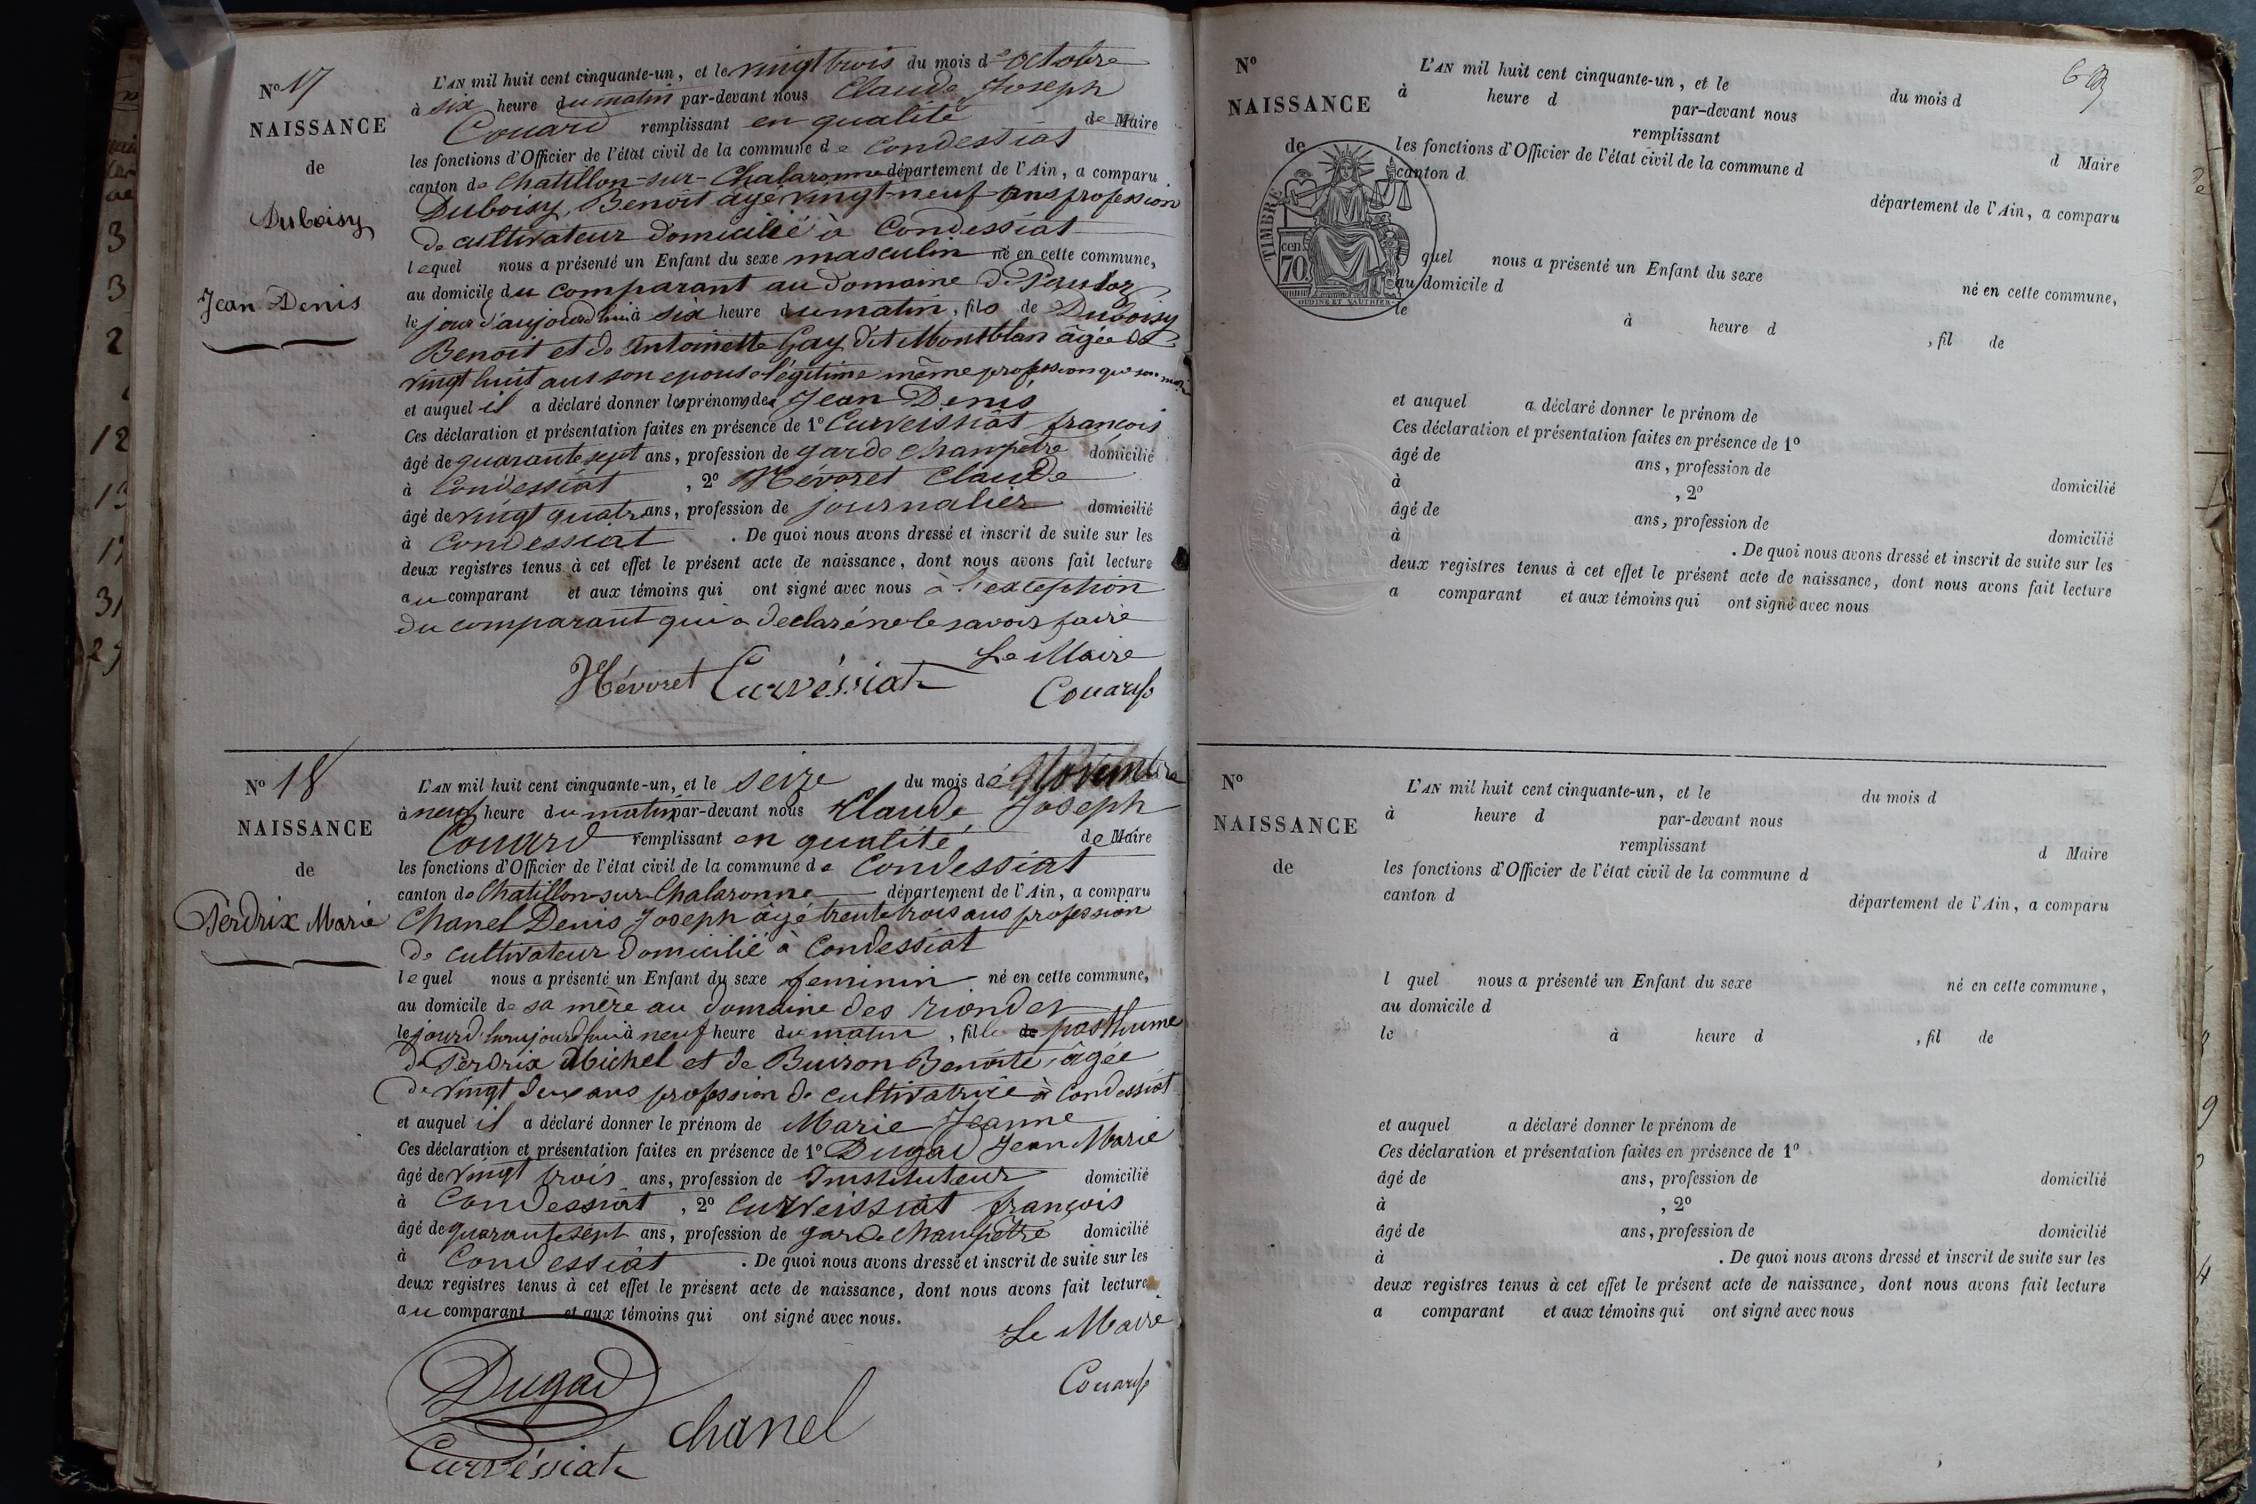 N° 17
NAISSANCE
de
Duboisy
Jean Denis
L'AN mil huit cent cinquante-un, et le vingt trois du mois d'octobre
à six heure du matin par-devant nous Claude Joseph
Couard remplissant en qualité de Maire
les fonctions d'Officier de l'état civil de la commune de Condessiat
canton de Chatillon-sur-Chalaronne département de l'Ain, a comparu
Duboisy, Benoit âgé vingt-neuf ans profession
de cultivateur domicilié à Condessiat
lequel nous a présenté un Enfant du sexe masculin né en cette commune,
au domicile du comparant au domaine de
le jour d'aujourd'hui à six heure du matin, fils de Duboisy
Benoit et de Antoinette Gay dit Montblan âgée de
vingt huit ans son epouse légitime même profession que son mari
et auquel il a déclaré donner les prénoms de Jean Denis
Ces déclaration et présentation faites en présence de 1° Curveissiat françois
âgé de quarante sept ans, profession de garde champetre domicilié
à Condessiat, 2° Névoret Claude
âgé de vingt quatre ans, profession de journalier domicilié
à Condessiat. De quoi nous avons dressé et inscrit de suite sur les
deux registres tenus à cet effet le présent acte de naissance, dont nous avons fait lecture
au comparant et aux témoins qui ont signé avec nous à l'exception
du comparant qui a declaré ne le savoir faire
Le Maire
Névoret Curvéssiat Couard
N° 18
NAISSANCE
de
Perdrix Marie
L'AN mil huit cent cinquante-un, et le seize du mois de Novembre
à neuf heure du matin par-devant nous Claude Joseph
Couard remplissant en qualité de Maire
les fonctions d'Officier de l'état civil de la commune de Condessiat
canton de Chatillon-sur-Chalaronne département de l'Ain, a comparu
Chanel Denis Joseph âgé trente trois ans profession
de cultivateur domicilié à Condessiat
lequel nous a présenté un Enfant du sexe feminin né en cette commune,
au domicile de sa mère au domaine des riondes
le jour d'aujourd'hui à neuf heure du matin, fille de posthume
de Perdrix Michel et de Buiron Benoite, âgée
de vingt deux ans profession de cultivatrice à Condessiat
et auquel il a déclaré donner le prénom de Marie Jeanne
Ces déclaration et présentation faites en présence de 1° Dugad Jean Marie
âgé de vingt trois ans, profession de Instituteur domicilié
à Condessiat, 2° Curveissiat françois
âgé de quarante sept ans, profession de garde champêtre domicilié
à Condessiat. De quoi nous avons dressé et inscrit de suite sur les
deux registres tenus à cet effet le présent acte de naissance, dont nous avons fait lecture
au comparant et aux témoins qui ont signé avec nous.
Le Maire
Dugad
Couard
chanel
Curvéssiat
N°
NAISSANCE
de
TIMBRE
cen
70
OUDINE ET VAUTHIER
L'AN mil huit cent cinquante-un, et le du mois d
à heure d par-devant nous
remplissant d Maire
les fonctions d'Officier de l'état civil de la commune d
canton d département de l'Ain, a comparu
quel nous a présenté un Enfant du sexe né en cette commune,
au domicile d
le à heure d , fil de
et auquel a déclaré donner le prénom de
Ces déclaration et présentation faites en présence de 1°
âgé de ans, profession de domicilié
à , 2°
âgé de ans, profession de domicilié
à . De quoi nous avons dressé et inscrit de suite sur les
deux registres tenus à cet effet le présent acte de naissance, dont nous avons fait lecture
a comparant et aux témoins qui ont signé avec nous
N°
NAISSANCE
de
L'AN mil huit cent cinquante-un, et le du mois d
à heure d par-devant nous
remplissant d Maire
les fonctions d'Officier de l'état civil de la commune d
canton d département de l'Ain, a comparu
l quel nous a présenté un Enfant du sexe né en cette commune,
au domicile d
le à heure d , fil de
et auquel a déclaré donner le prénom de
Ces déclaration et présentation faites en présence de 1°
âgé de ans, profession de domicilié
à , 2°
âgé de ans, profession de domicilié
à . De quoi nous avons dressé et inscrit de suite sur les
deux registres tenus à cet effet le présent acte de naissance, dont nous avons fait lecture
a comparant et aux témoins qui ont signé avec nous